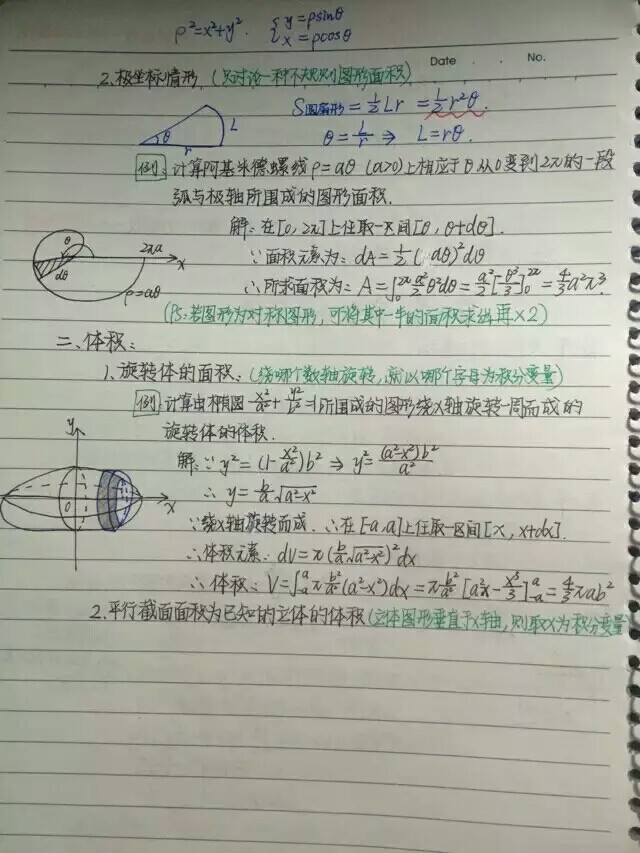 ρ²=x²+y². { y=ρsinθ
x=ρcosθ
Date . . No.
2.极坐标情形 (只讨论一种不规则图形面积)
S圆扇形=½Lr=½r²θ.
θ=L/r ⇒ L=rθ.
θ L r
例: 计算阿基米德螺线ρ=aθ (a>0)上相应于θ从0变到2π的一段
弧与极轴所围成的图形面积.
解: 在[0, 2π]上任取一区间[θ, θ+dθ].
∵面积元素为: dA=½(aθ)²dθ
∴所求面积为: A=∫₀^2π a²/2 θ²dθ=a²/2[θ³/3]₀^2π=4/3a²π³.
θ dθ 2πa x ρ=aθ
(PS:若图形为对称图形,可将其中一半的面积求出再×2)
二、体积:
1.旋转体的面积: (绕哪个数轴旋转,就以哪个字母为积分变量)
例: 计算由椭圆x²/a²+y²/b²=1所围成的图形绕X轴旋转一周而成的
旋转体的体积.
解: ∵y²=(1-x²/a²)b² ⇒ y²=(a²-x²)b²/a²
∴y=b/a√(a²-x²)
y 0 x
∵绕X轴旋转而成, ∴在[-a,a]上任取一区间[x, x+dx].
∴体积元素: dV=π(b/a√(a²-x²))²dx
∴体积: V=∫₋ₐ^a π b²/a²(a²-x²)dx=π b²/a²[a²x-x³/3]₋ₐ^a=4/3πab²
2.平行截面面积为已知的立体的体积(立体图形垂直于x轴,则取X为积分变量